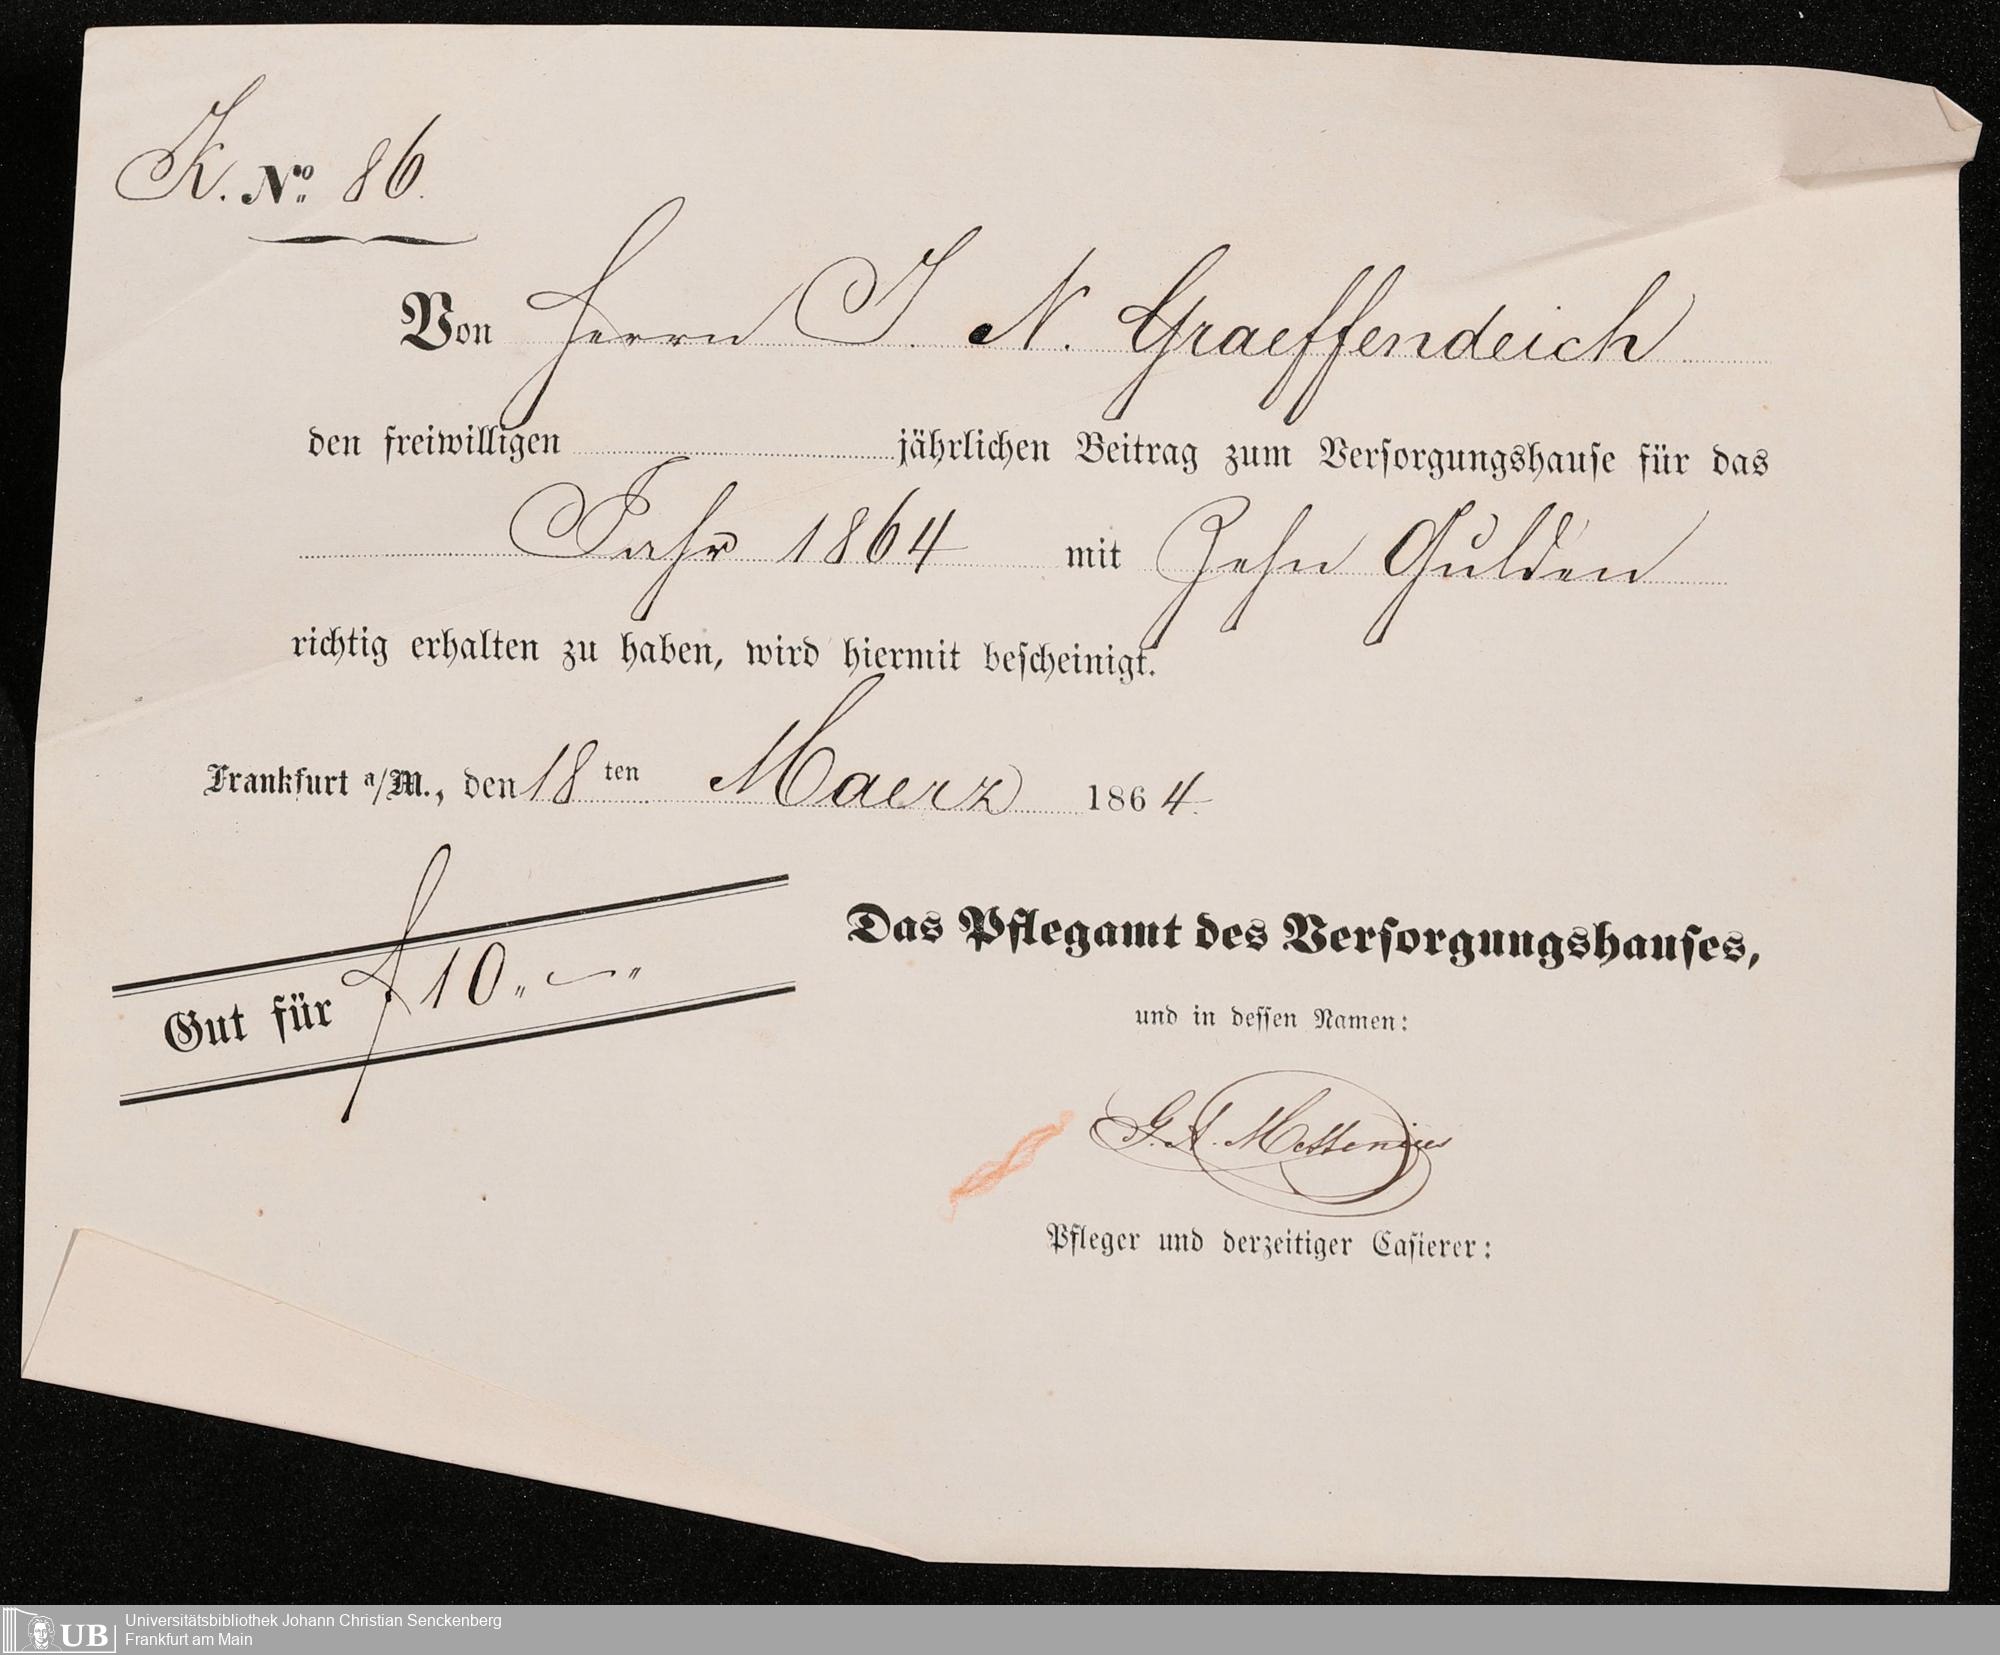 K. No. 86.
Von Herrn J. N. Graeffendeich
den freiwilligen jährlichen Beitrag zum Versorgungshause für das
Jahr 1864 mit Zehn Gulden
richtig erhalten zu haben, wird hiermit bescheinigt.
Frankfurt a/M., den 18 ten Maerz 1864.
Gut für f 10 „ — „
Das Pflegamt des Versorgungshauses,
und in dessen Namen:
G. A. Mettenius
Pfleger und derzeitiger Casierer:
UB Universitätsbibliothek Johann Christian Senckenberg
Frankfurt am Main